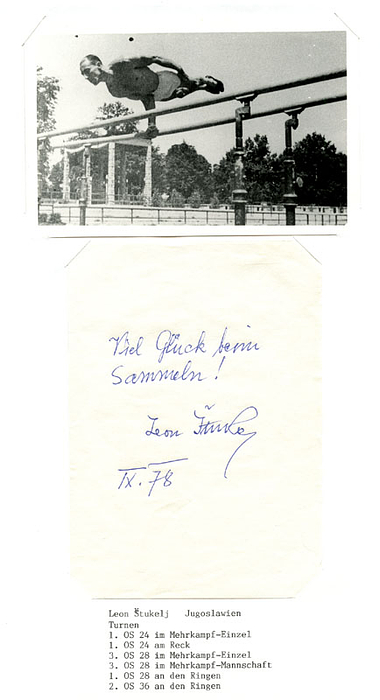 Viel Glück beim
Sammeln!
Leon Štukelj
IX. 78
Leon Štukelj Jugoslawien
Turnen
1. OS 24 im Mehrkampf-Einzel
1. OS 24 am Reck
3. OS 28 im Mehrkampf-Einzel
3. OS 28 im Mehrkampf-Mannschaft
1. OS 28 an den Ringen
2. OS 36 an den Ringen